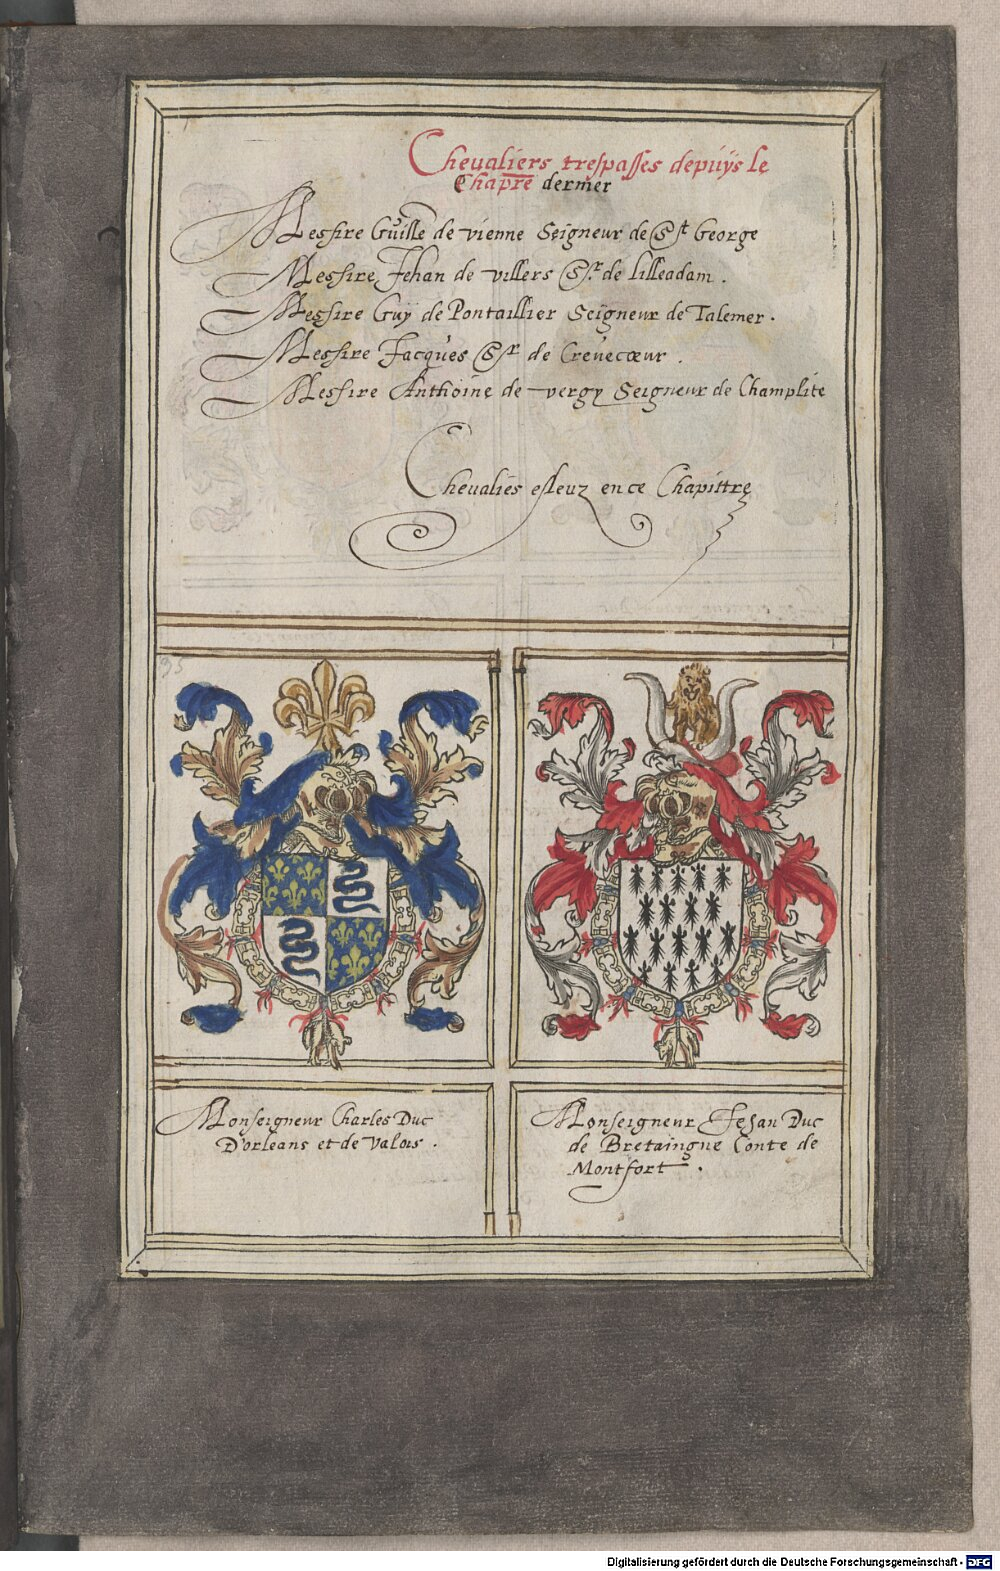 Chevaliers trespasses depuÿs le
Chap̅r̅e̅ dernier
Messire Guill̅e̅ de vienne Seigneur de St George
Messire Jehan de villers Sr. de Lilleadam.
Messire Guÿ de Pontaillier Seigneur de Talemer.
Messire Jacques Sr de Crevecœur.
Messire Anthoine de vergy Seigneur de Champlite
Chevaliés esleuz en ce Chapittre
95
Monseigneur Charles Duc
D'orleans et de Valois.
Monseigneur Jehan Duc
de Bretaingne Conte de
Montfort.
Digitalisierung gefördert durch die Deutsche Forschungsgemeinschaft - DFG